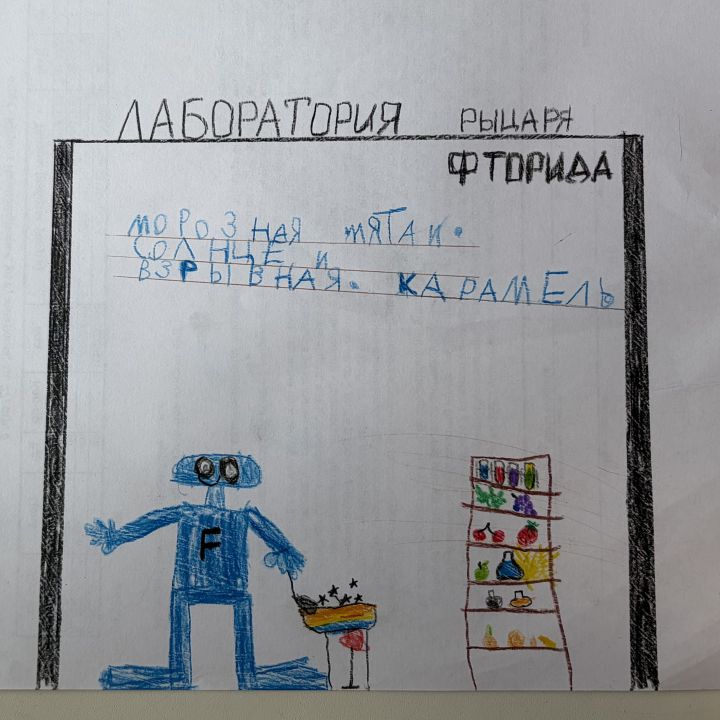 ЛАБОРАТОРИЯ РЫЦАРЯ
ФТОРИДА
МОРОЗНАЯ МЯТА И.
СОЛНЦЕ И
ВЗРЫВНАЯ. КАРАМЕЛЬ
F